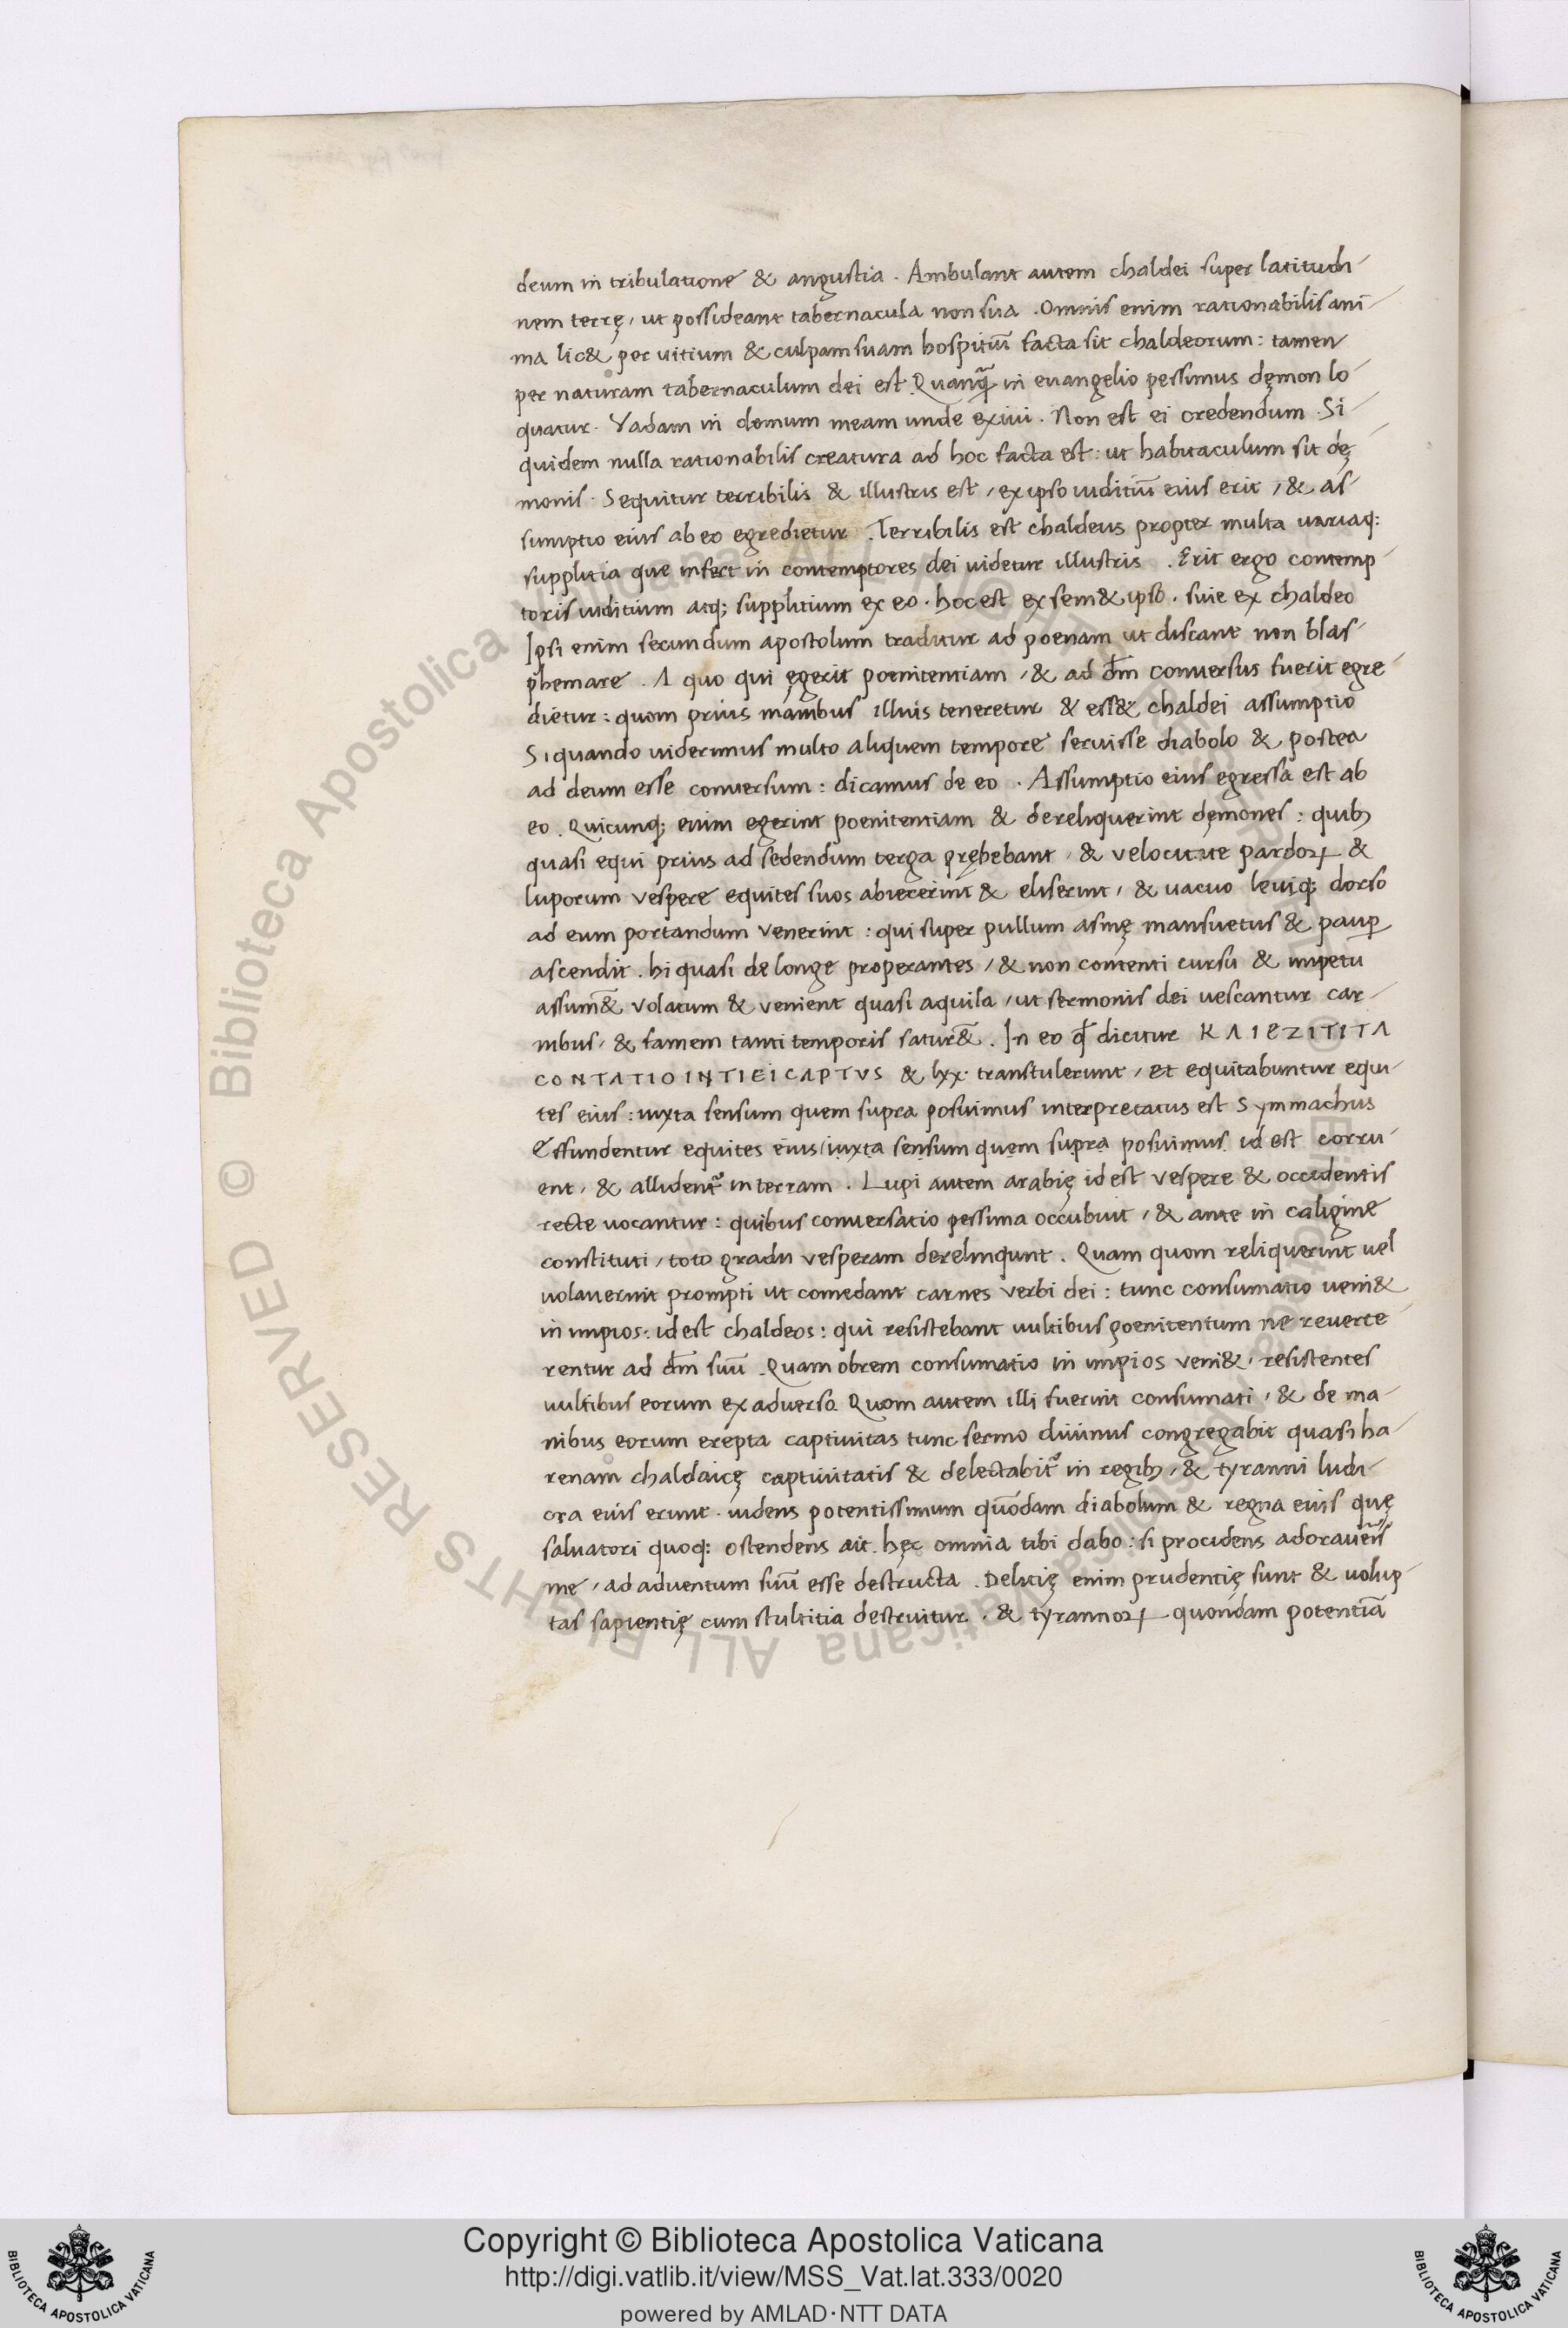 deum in tribulatione & angustia . Ambulant autem chaldei super latitudi-
nem terrę, ut possideant tabernacula non sua . Omnis enim rationabilis ani-
ma lic& per uitium & culpam suam hospitiũ facta sit chaldeorum : tamen
per naturam tabernaculum dei est . Quanq̃ in euangelio pessimus dęmon lo-
quatur . Vadam in domum meam unde exiui . Non est ei credendum . Si-
quidem nulla rationabilis creatura ad hoc facta est : ut habitaculum sit dę-
monis . Sequitur terribilis & illustris est, ex ipso iuditiũ eius erit, & as-
sumptio eius ab eo egredietur . Terribilis est chaldeus propter multa uariaq:
supplitia que infert in contemptores dei uidetur illustris . Erit ergo contemp-
toris iuditium atq; supplitium ex eo . hoc est ex sem&ipso . siue ex chaldeo
Ipsi enim secundum apostolum traditur ad poenam ut discant non blas-
phemare . A quo qui ęgerit poenitentiam, & ad dm̄ conuersus fuerit egre-
dietur : quom prius manibus illius teneretur & ess& chaldei assumptio
Si quando uiderimus multo aliquem tempore seruisse diabolo & postea
ad deum esse conuersum : dicamus de eo . Assumptio eius egressa est ab
eo . Quicunq; enim egerint poenitentiam & dereliquerint dęmones : quib;
quasi equi prius ad sedendum terga pręhebant, & velocitate pardoꝝ &
luporum vespere equites suos abiecerint & eliserint, & uacuo leuiq; dorso
ad eum portandum venerint : qui super pullum asinę mansuetus & paup̱
ascendit . hi quasi de longe properantes, & non contenti cursu & impetu
assum&̃ volatum & venient quasi aquila, ut sermonis dei uescantur car-
nibus, & famem tanti temporis satur&̃ . In eo qđ dicitur KAIEZITITA
CONTATIOINTIEICAPTVS & lxx transtulerunt, Et equitabuntur equi-
tes eius : iuxta sensum quem supra posuimus interpretatus est Symmachus
Effundentur equites eius / iuxta sensum quem supra posuimus id est corru-
ent, & allident᷑ in terram . Lupi autem arabię id est vespere & occidentis
recte uocantur : quibus conuersatio pessima occubuit, & ante in caligine
constituti, toto gradu vesperam derelinqunt . Quam quom reliquerint uel
uolauerint prompti ut comedant carnes verbi dei : tunc consumatio ueni&
in impios : id est chaldeos : qui resistebant uultibus poenitentum ne reuerte-
rentur ad dm̄ suũ . Quamobrem consumatio in impios veni&, resistentes
uultibus eorum ex aduerso . Quom autem illi fuerint consumati, & de ma-
nibus eorum erepta captiuitas tunc sermo diuinus congregabit quasi ha-
renam chaldaicę captiuitatis & delectabit᷑ in regib;, & tyranni ludi-
cra eius erunt . uidens potentissimum quõdam diabolum & regna eius quę
saluatori quoq: ostendens ait . hęc omnia tibi dabo : si procidens adoraueris
me, ad aduentum suũ esse destructa . Delitię enim prudentię sunt & uolup-
tas sapientię cum stultitia destruitur, & tyrannoꝝ quondam potentiã
Copyright © Biblioteca Apostolica Vaticana
http://digi.vatlib.it/view/MSS_Vat.lat.333/0020
powered by AMLAD·NTT DATA